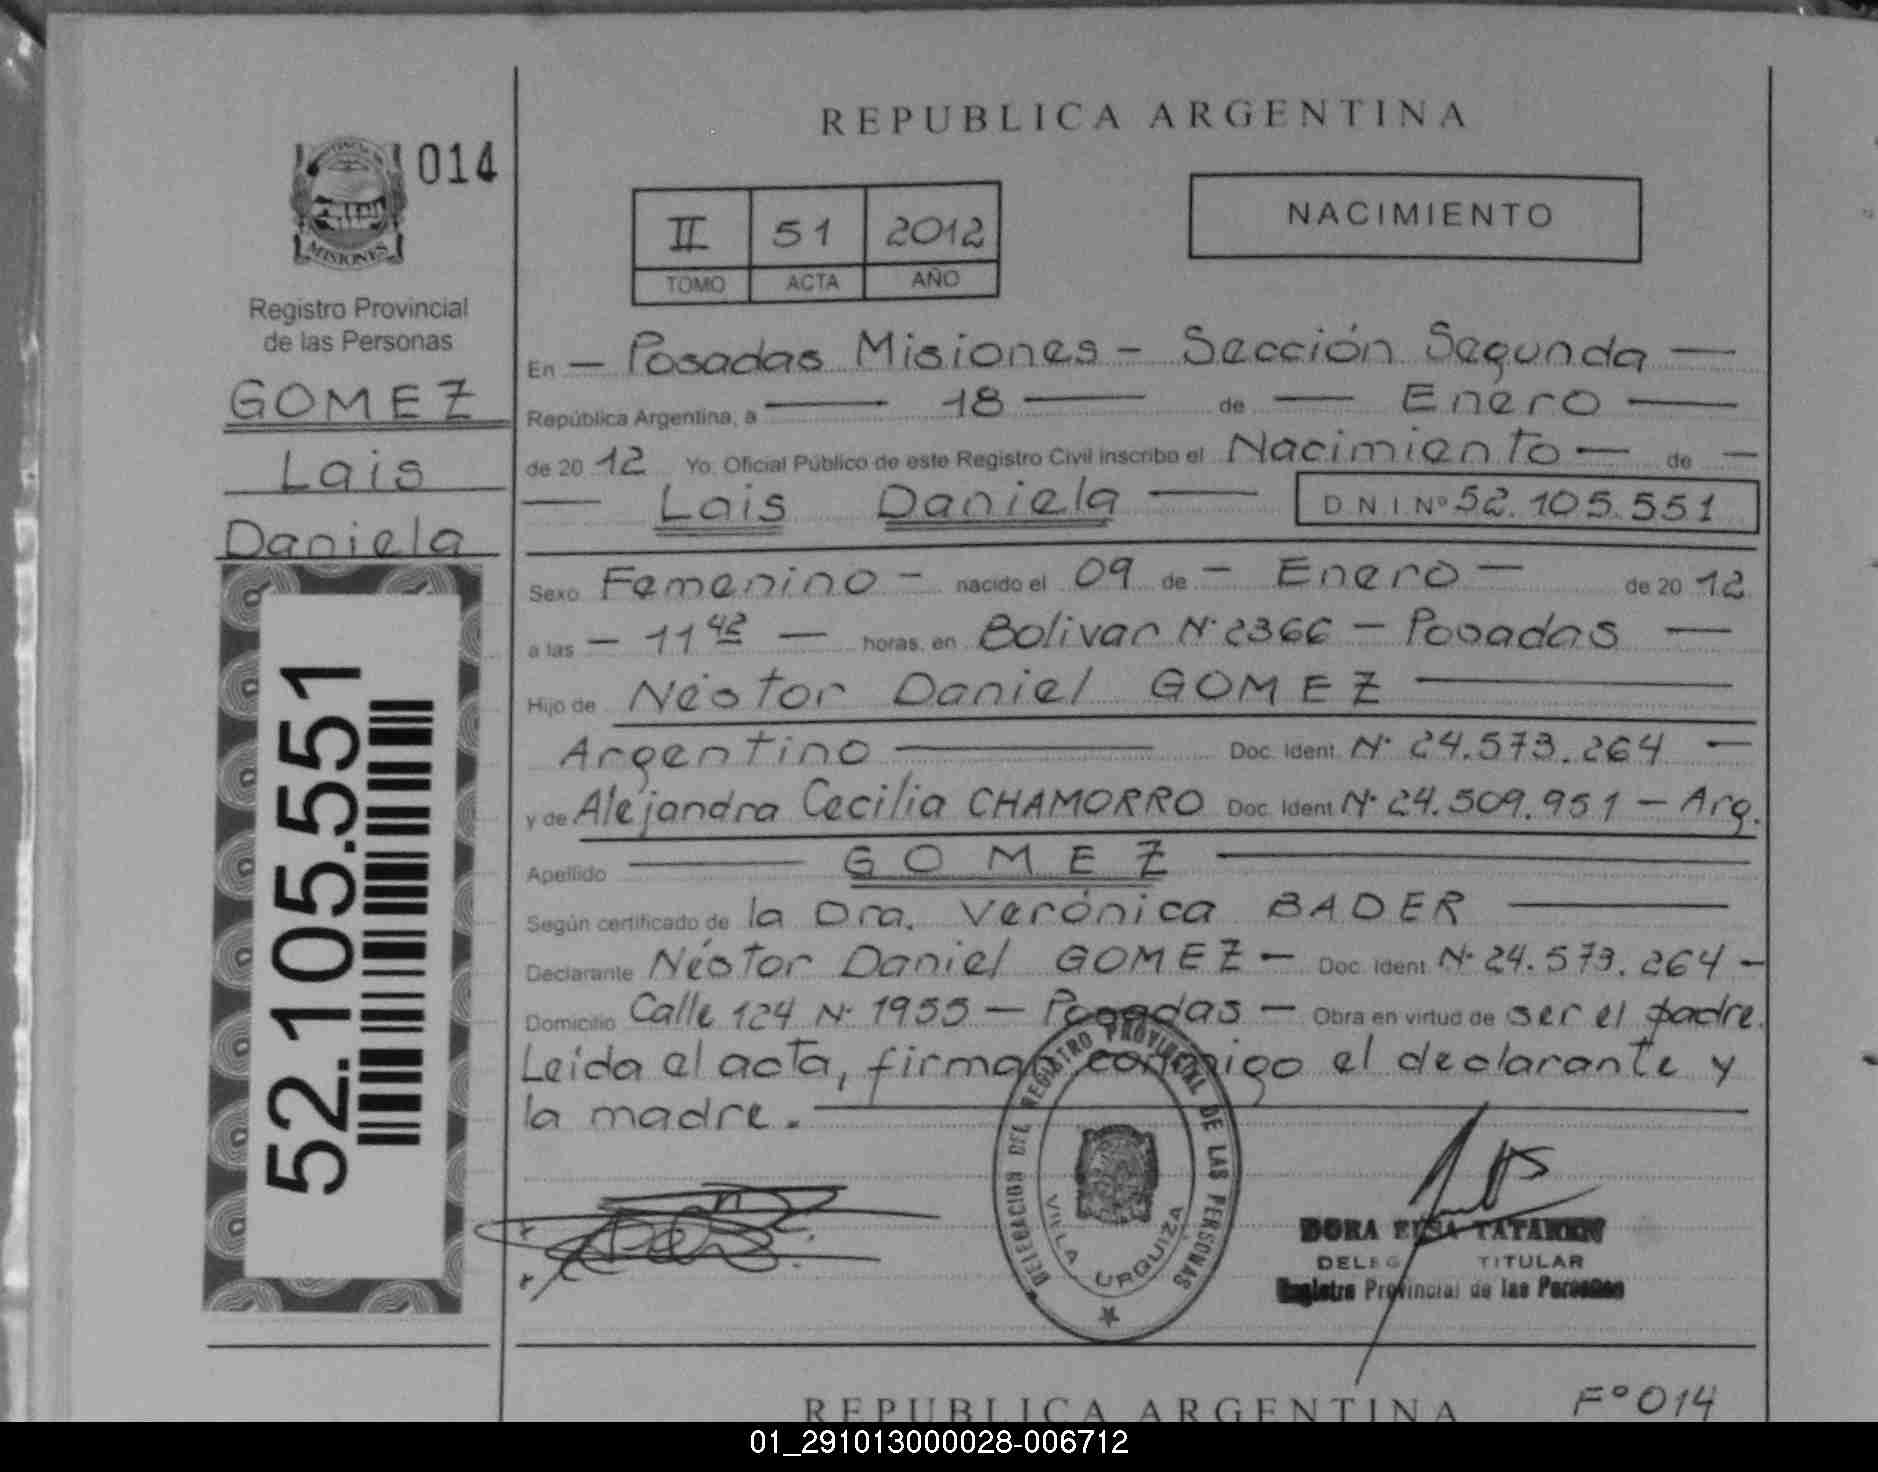 REPUBLICA ARGENTINA
014
MISIONES
Registro Provincial
de las Personas
GOMEZ
Lais
Daniela
52.105.551
II 51 2012
TOMO ACTA AÑO
NACIMIENTO
En — Posadas Misiones - Sección Segunda —
República Argentina, a — 18 — de — Enero —
de 20 12 Yo, Oficial Público de este Registro Civil inscribo el Nacimiento — de —
— Lais Daniela — D N I Nº 52.105.551
Sexo Femenino - nacido el 09 de - Enero - de 20 12
a las - 11 42 - horas, en Bolivar Nº 2366 - Posadas —
Hijo de Néstor Daniel GOMEZ —
Argentino — Doc. Ident. Nº 24.573.264 —
y de Alejandra Cecilia CHAMORRO Doc. Ident Nº 24.509.951 - Arg.
Apellido — GOMEZ —
Según certificado de la Dra. Verónica BADER —
Declarante Néstor Daniel GOMEZ - Doc. Ident. Nº 24.573.264 -
Domicilio Calle 124 Nº 1955 - Posadas - Obra en virtud de ser el padre.
Leída el acta, firman conmigo el declarante y
la madre. —
DELEGACION DEL REGISTRO PROVINCIAL DE LAS PERSONAS
VILLA URQUIZA
DORA ELSA
DELEG TITULAR
Registro Provincial de las Personas
REPUBLICA ARGENTINA
Fº 014
01_291013000028-006712